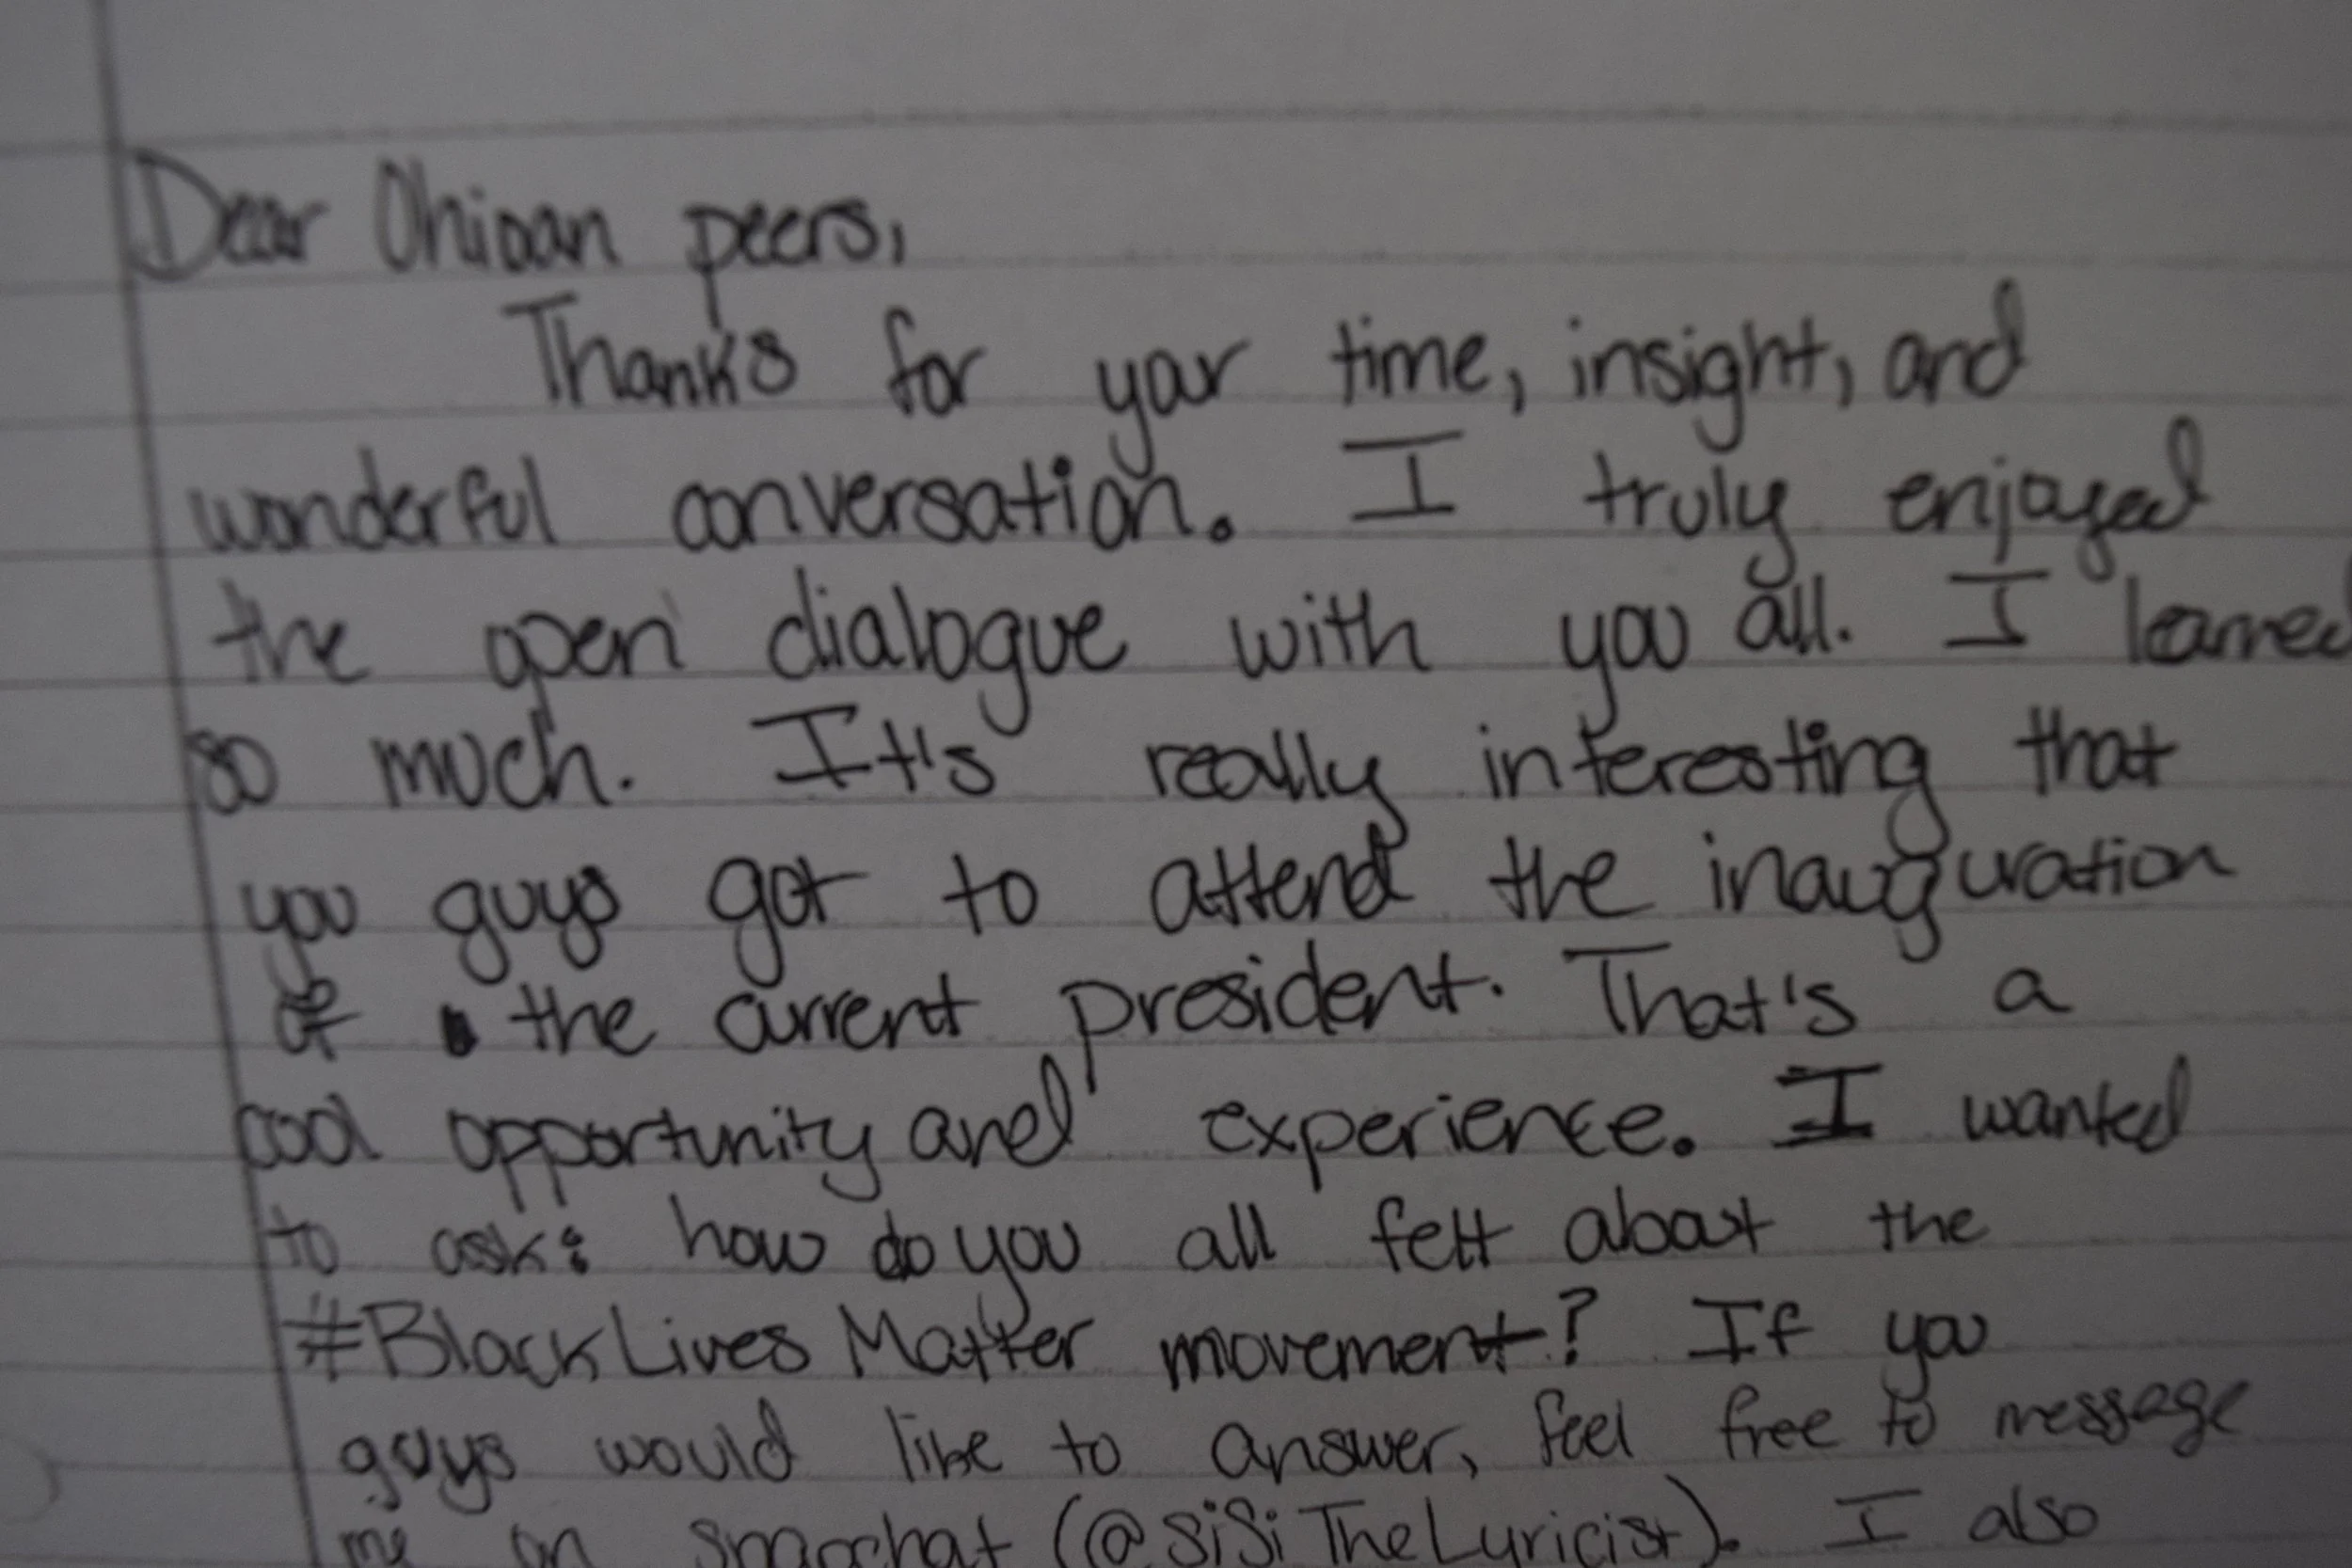 Dear Ohioan peers,
Thanks for your time, insight, and
wonderful conversation. I truly enjoyed
the open dialogue with you all. I learned
so much. It's really interesting that
you guys got to attend the inauguration
of the current president. That's a
cool opportunity and experience. I wanted
to ask: how do you all felt about the
#BlackLivesMatter movement? If you
guys would like to answer, feel free to message
me on snapchat (@SiSiTheLyricist). I also